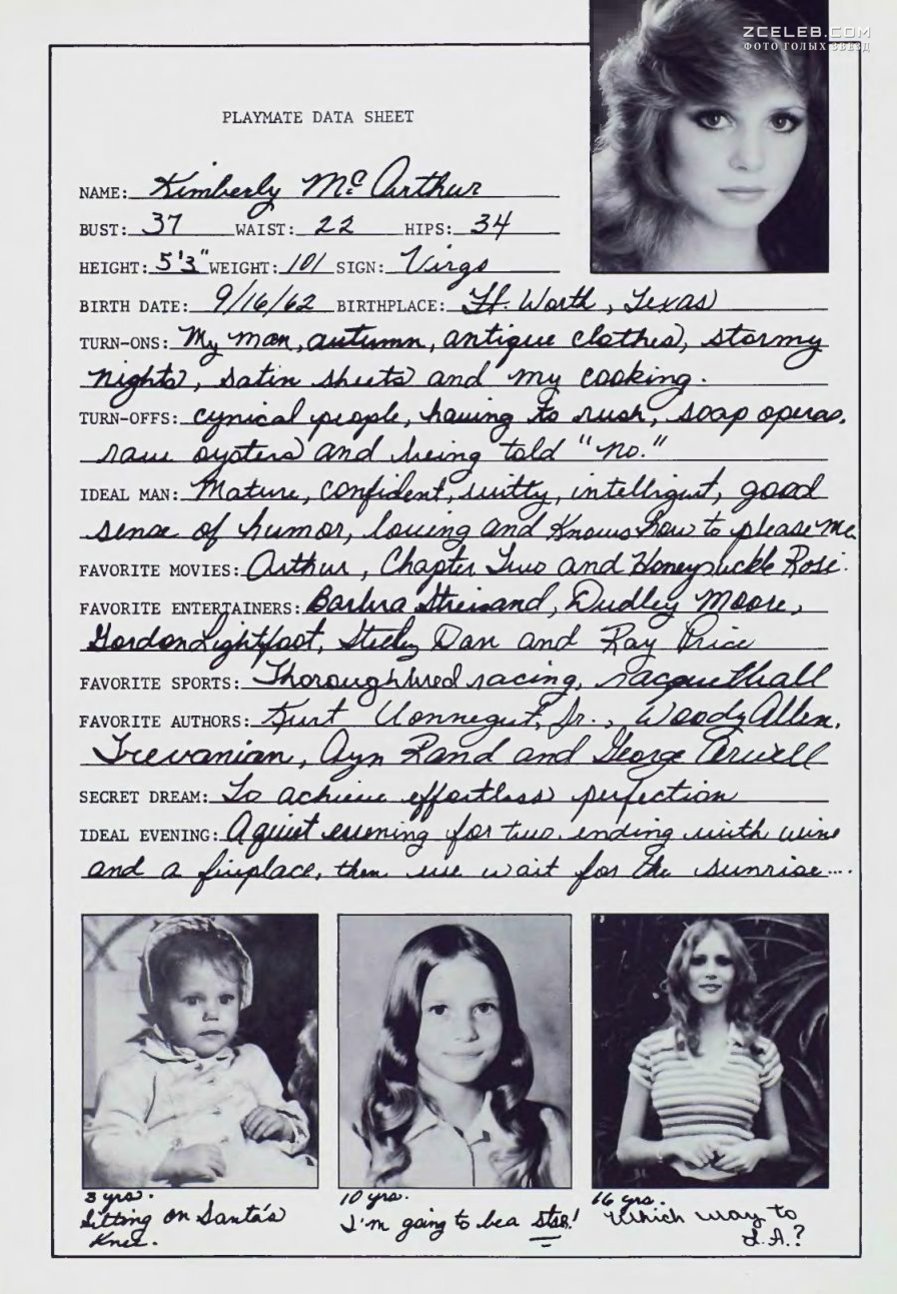 ZCELEB.COM
ФОТО ГОЛЫХ ЗВЕЗД
PLAYMATE DATA SHEET
NAME: Kimberly McArthur
BUST: 37 WAIST: 22 HIPS: 34
HEIGHT: 5'3" WEIGHT: 101 SIGN: Virgo
BIRTH DATE: 9/16/62 BIRTHPLACE: Ft. Worth, Texas
TURN-ONS: My man, autumn, antique clothes, stormy
nights, satin sheets and my cooking.
TURN-OFFS: cynical people, having to rush, soap operas,
raw oysters and being told "no."
IDEAL MAN: Mature, confident, witty, intelligent, good
sense of humor, loving and knows how to please me.
FAVORITE MOVIES: Arthur, Chapter Two and Honeysuckle Rose.
FAVORITE ENTERTAINERS: Barbra Streisand, Dudley Moore,
Gordon Lightfoot, Steely Dan and Ray Price
FAVORITE SPORTS: Thoroughbred racing, racquetball
FAVORITE AUTHORS: Kurt Vonnegut, Jr., Woody Allen,
Trevanian, Ayn Rand and George Orwell
SECRET DREAM: To achieve effortless perfection
IDEAL EVENING: A quiet evening for two, ending with wine
and a fireplace, then we wait for the sunrise....
3 yrs.
Sitting on Santa's
Knee.
10 yrs.
I'm going to be a star!
16 yrs.
Which way to
L.A.?